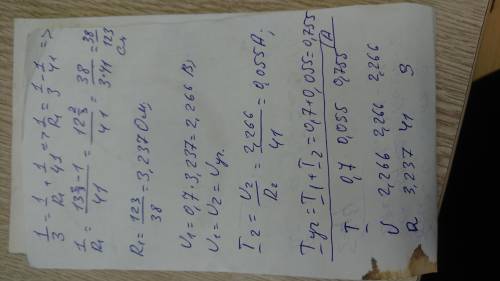 1/3 = 1/R₁ + 1/41 => 1/R₁ = 1/3 - 1/41 =>
1/R₁ = (13⅔ - 1)/41 = 12⅔/41 = 38/(3·41) = 38/123 См
R₁ = 123/38 = 3,237 Ом,
U₁ = 0,7 · 3,237 = 2,266 В;
U₁ = U₂ = Uуг.
I₂ = U₂/R₂ = 2,266/41 = 0,055 А;
Iуг = I₁ + I₂ = 0,7 + 0,055 = 0,755 А
I 0,7 0,055 0,755
U 2,266 2,266 2,266
R 3,237 41 3